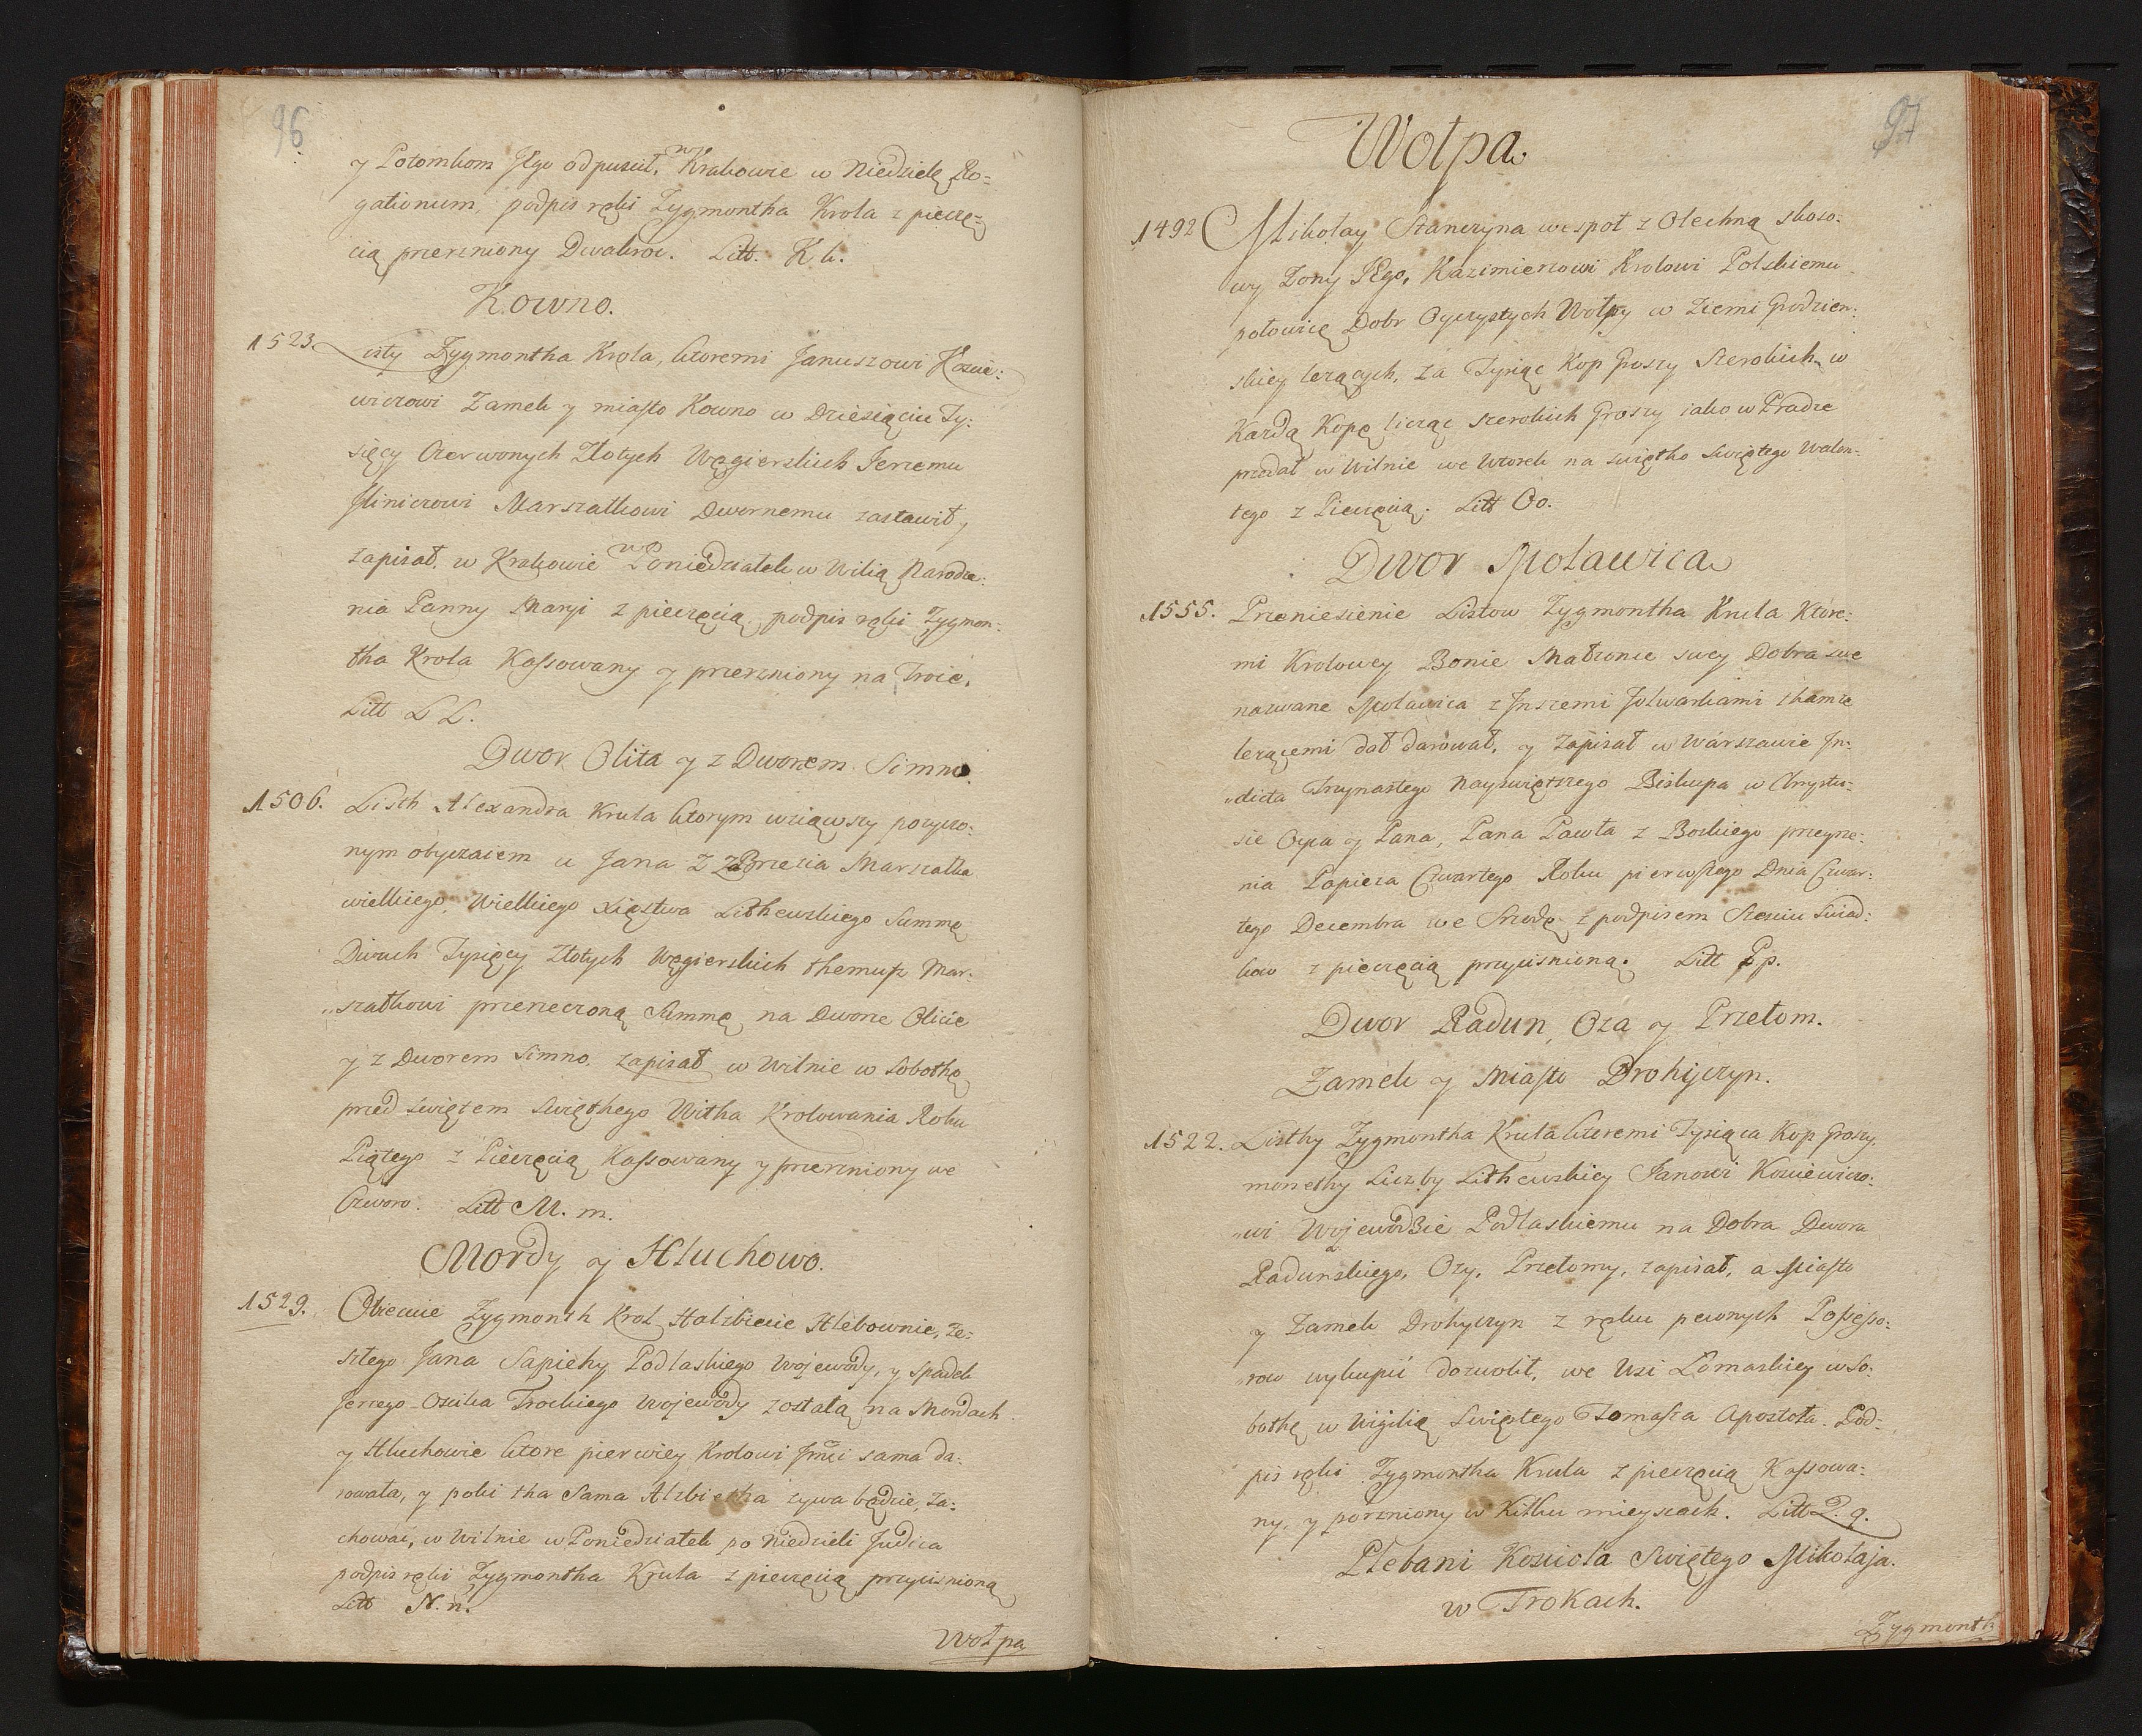 96
y Potomkom Jego odpuscił, w Krakowie w Niedzielę Ro=
gationum, podpis ręki Zygmontha Krola z pieczę=
cią przerzniony Dwakroc. Litt. K k.
Kowno.
1523. Listy Zygmontha Krola, ktoremi Januszowi Koscie:
wiczowi Zamek y miasto Kowno w Dziesiąciu Ty:
sięcy Czerwonych Złotych Węgierskich Jerzemu
Jliniczowi Marszałkowi Dwornemu zastawił y
zapisał, w Krakowie w Poniedziałek w Wilią Narodze:
nia Panny Maryi z pieczęcią podpis ręki Zygmon:
tha Krola Kassowany y przerzniony na Troie.
Litt L L.
Dwor Olita y z Dworem Simno.
1506. Listh Alexandra Krula ktorym wziąwszy pozyczo:
nym obyczaiem u Jana Z zaBrzezia Marszałka
wielkiego, Wielkiego Xięstwa Lithewskiego Summę
Dwuch Tysięcy Złotych Węgierskich themusz Mar:
„szałkowi przerzeczoną Summę na Dworze Olicie
y z Dworem Simno, zapisał w Wilnie w Sobothę
przed swiętem Swięthego Witha Krolowania Roku
Piątego z Pieczęcią Kassowany y przerzniony we
Czworo. Litt M. m.
Mordy y Hluchowo.
1529. Obiecuie Zygmonth Krol Halzbiecie Hlebownie, Ze:
szłego Jana Sapiehy Podlaskiego Wojewody, y spadek
Jerzego Oscika Trockiego Wojewody została na Mordach
y Hluchowie ktore pierwiey Krolowi Jmci sama da:
rowała, y poki tha Sama Alzbietha zywa będzie, Za:
chowac, w Wilnie w Poniedziałek po Niedzieli Judica
podpis ręki Zygmontha Krula z pieczęcią przycisnioną
Litt N. n.
Wołpa
97
Wołpa.
1492 Mikołay Stanczyna wespoł z Olechną Skoro:
wy Zony Jego, Kazimierzowi Krolowi Polskiemu
połowicę Dobr Oyczystych Wołpy w Ziemi Grodzien:
skiey lezących, za Tysiąc Kop Groszy Szerokich, w
Kazdą Kopę licząc szerokich Groszy iako w Pradze
przedał w Wilnie we Wtorek na swiętho Swiętego Walen:
tego z Pieczęcią. Litt Oo.
Dwor Moławica
1555. Przeniesienie Listow Zygmontha Krula Ktore:
mi Krolowey Bonie Małzonce swey Dobra swe
nazwane Moławica z Jnszemi Folwarkami thamze
lezącemi dał darował, y Zapisał w Warszawie Jn:
„dicta Trzynastego Nayswiętszego Biskupa w Chrystu:
sie Oyca y Pana, Pana Pawła z Boskiego przeyrze:
nia Papieza Czwartego Roku pierwszego Dnia Czwar:
tego Decembra we Srzodę z podpisem Szesciu Swiad:
kow z pieczęcią przycisnioną. Litt P p.
Dwor Radun, Oza y Przełom.
Zamek y Miasto Drohyczyn.
1522. Listhy Zygmontha Krula ktoremi Tysiąca Kop Groszy,
monethy Liczby Lithewskiey Janowi Kosciewiczo:
„wi Wojewodzie Podlaskiemu na Dobra Dwora
Radunskiego, Ozy, Przełomy, zapisał, a Miasto
y Zamek Drohyczyn z ręku pewnych Possesso:
row wykupić dozwolił, we Wsi Łomaskiey w So:
bothę w Wigilią Swiętego Tomasza Apostoła. Pod:
pis ręki Zygmontha Krula z pieczęcią Kassowa:
ny, y porzniony w Kilku mieyscach. Litt Q. q.
Plebani Kosciola Swiętego Mikołaja.
w Trokach.
Zygmonth